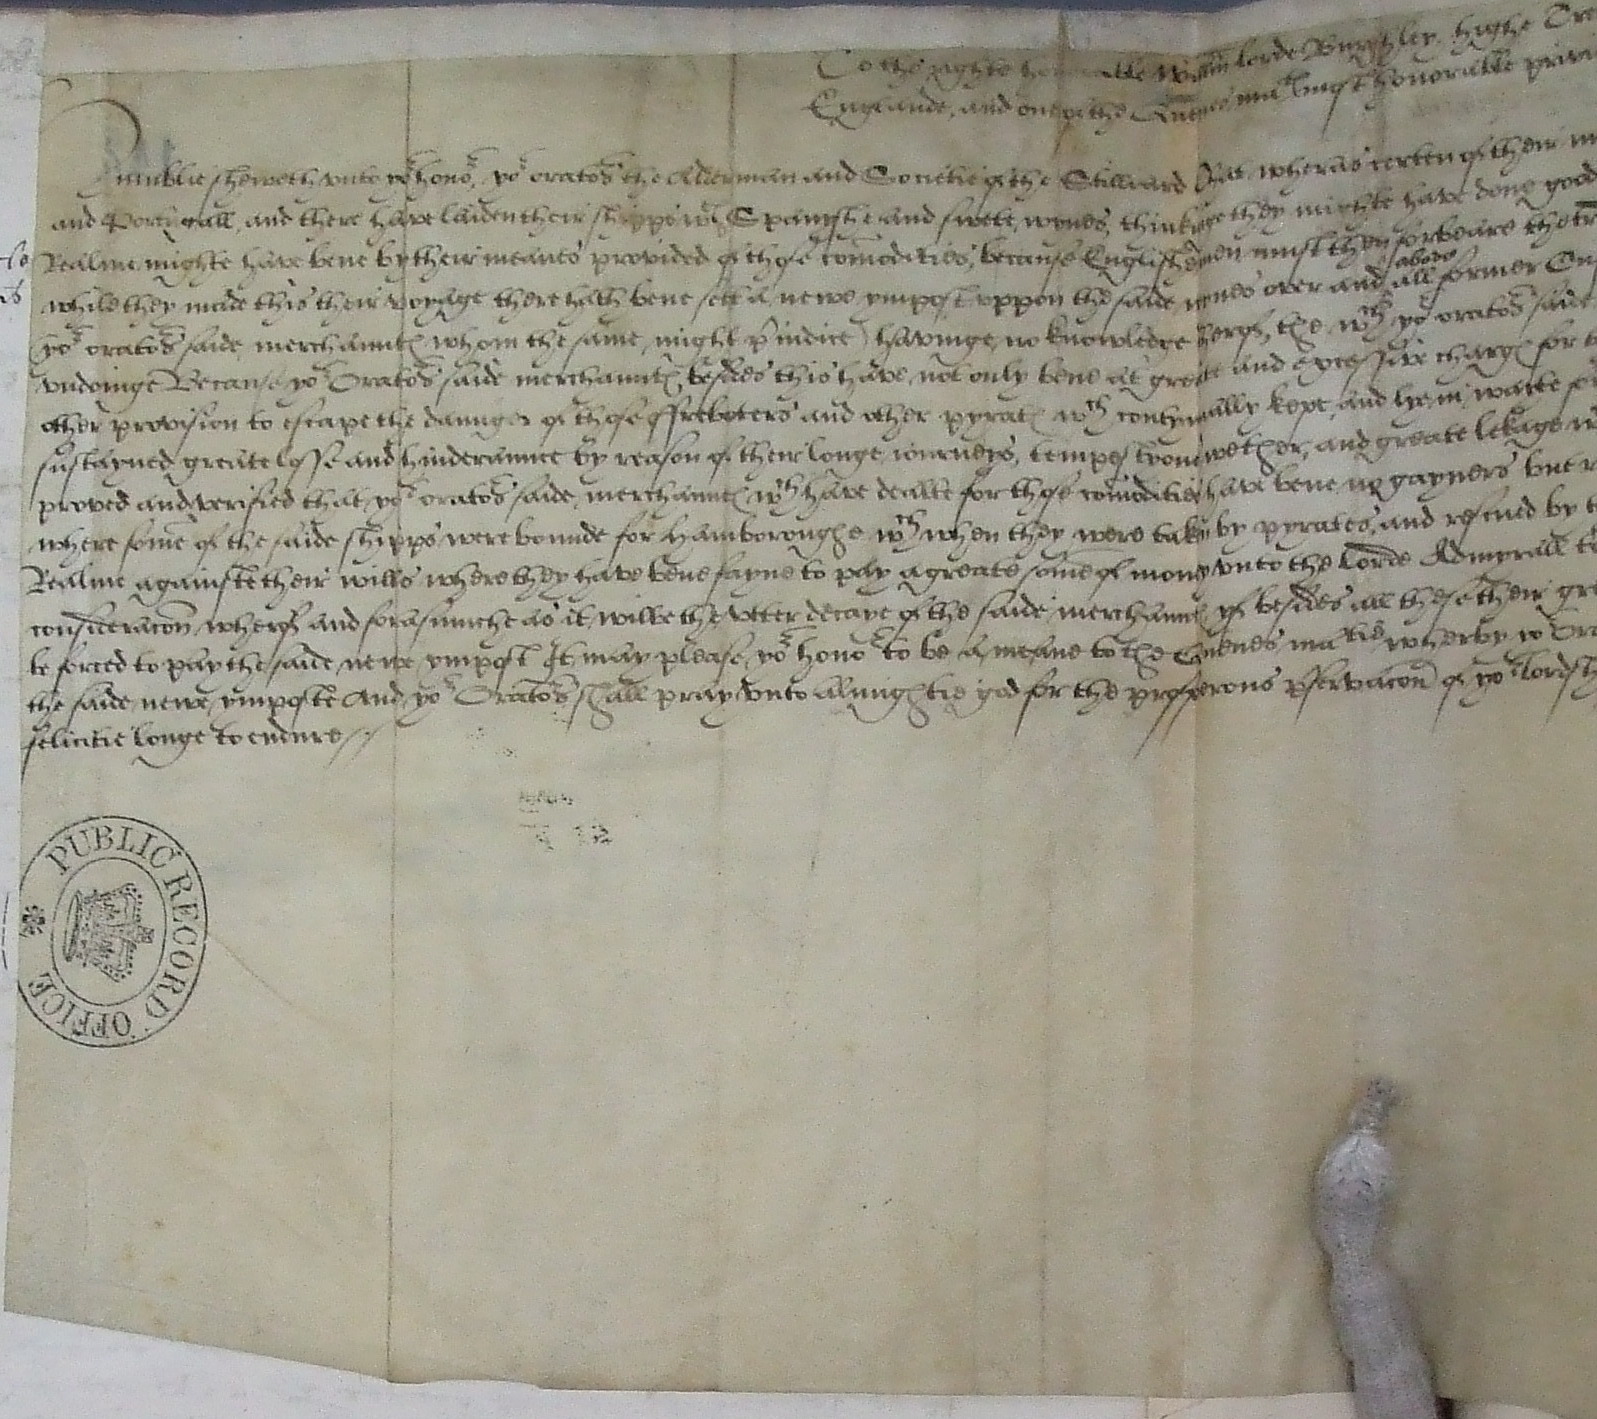 To the righte honorable Willm̃ lorde Burghley, highe Tre
Englande, and one of the Quenes maties most honorable privie
Humblie sheweth unto yor honor, yor orators the Alderman and Societie of the Stilliard That wheras certen of their m
and Portugall, and there have laiden their shipps wth Spanyshe and swete wynes, thinkinge they mighte have done good
Realme mighte have bene by their meanes provided of those comodities, because Englishemen must then forbeare the tr
above
while they made this their voyage there hath bene sett a newe ympost uppon the saide wynes over and all former Cus
(yor orators saide merchauntes whom the same might p̱iudice) havinge no knowledge therof, the wch yor orators saide
undoinge Because yor Orators saide merchauntes, besides this have not only bene at greate and excessive charges for
other provision to escape the daunger of those ffreboters and other pyrates wch contynually kepe and lye in waite for
sustayned greate losse and hinderaunce by reason of their longe iourneys, tempestyous wether, and greate lekage
proved and verified that yor orators saide merchauntes wch have dealte for those comodities have bene no gayners but
where some of the saide shipps were bounde for Hamboroughe wch when they were taken by pyrates, and rescued by
Realme againste their wills where they have bene fayne to pay a greate some of money unto the Lorde Admyrall
consideracon wherof and forasmuche as it wilbe the utter decaye of the saide merchauntes yf besides all these their gre
be forced to pay the saide newe ympost It may please yor honor to be a meane to the Quenes matie wherby yor Ora
the saide newe ymposte And yor Orators shall pray unto allmightie god for the prosperous p̱servacon of yor lordsh
felicitie longe to endure
PUBLIC RECORD OFFICE